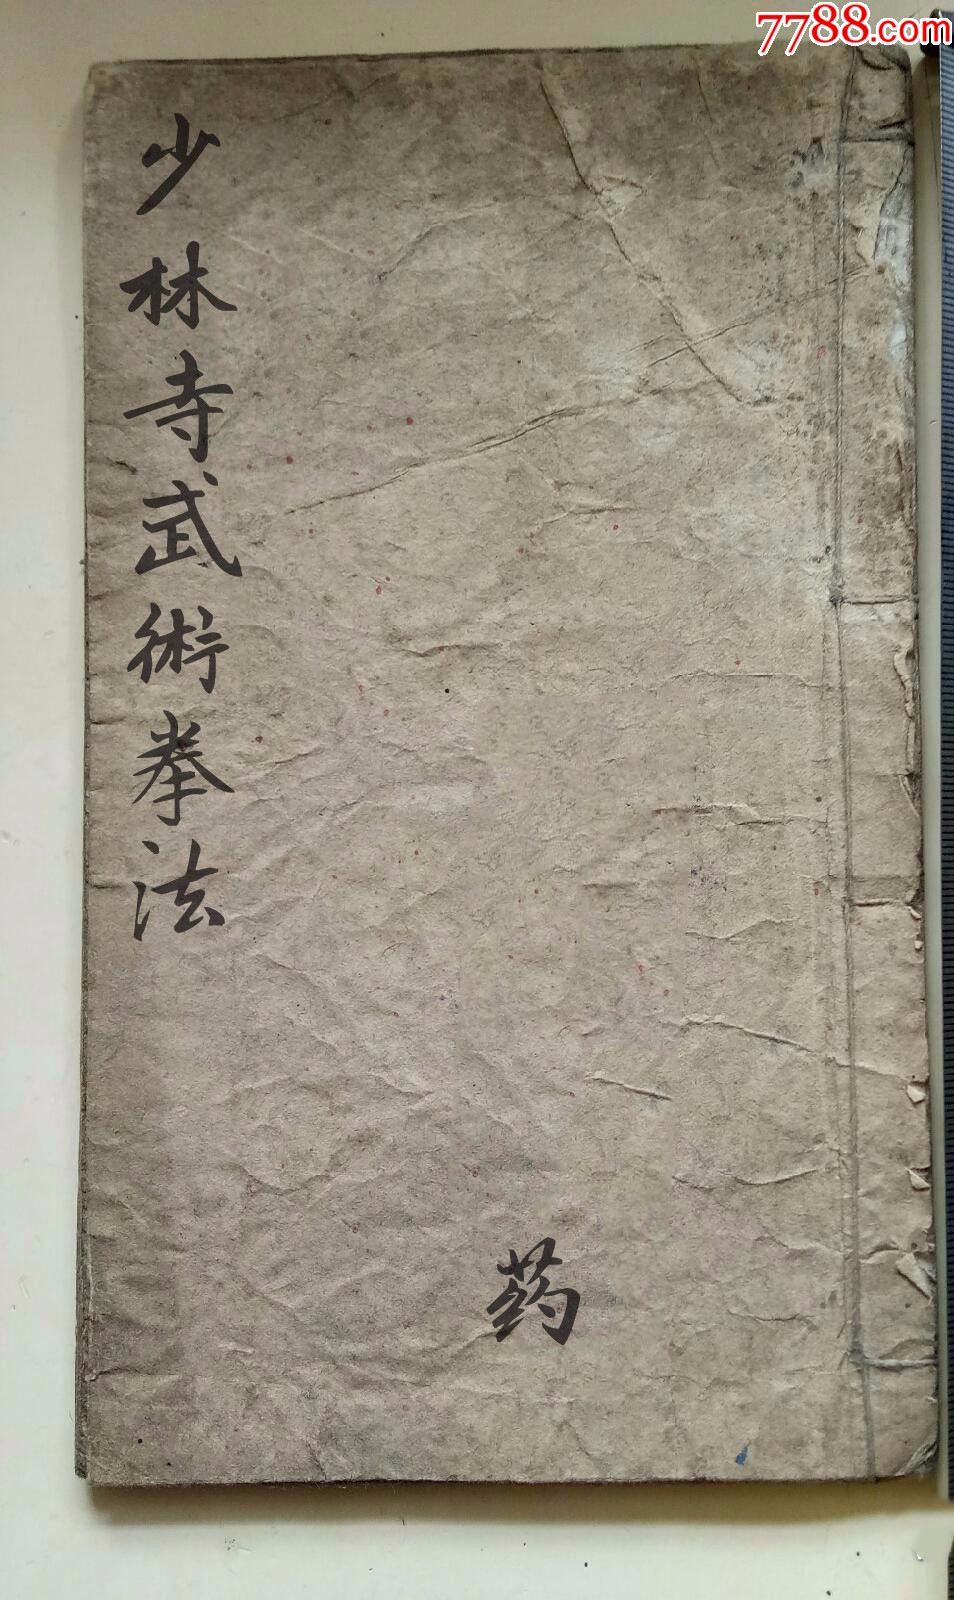 7788.com
少林寺武術拳法
药